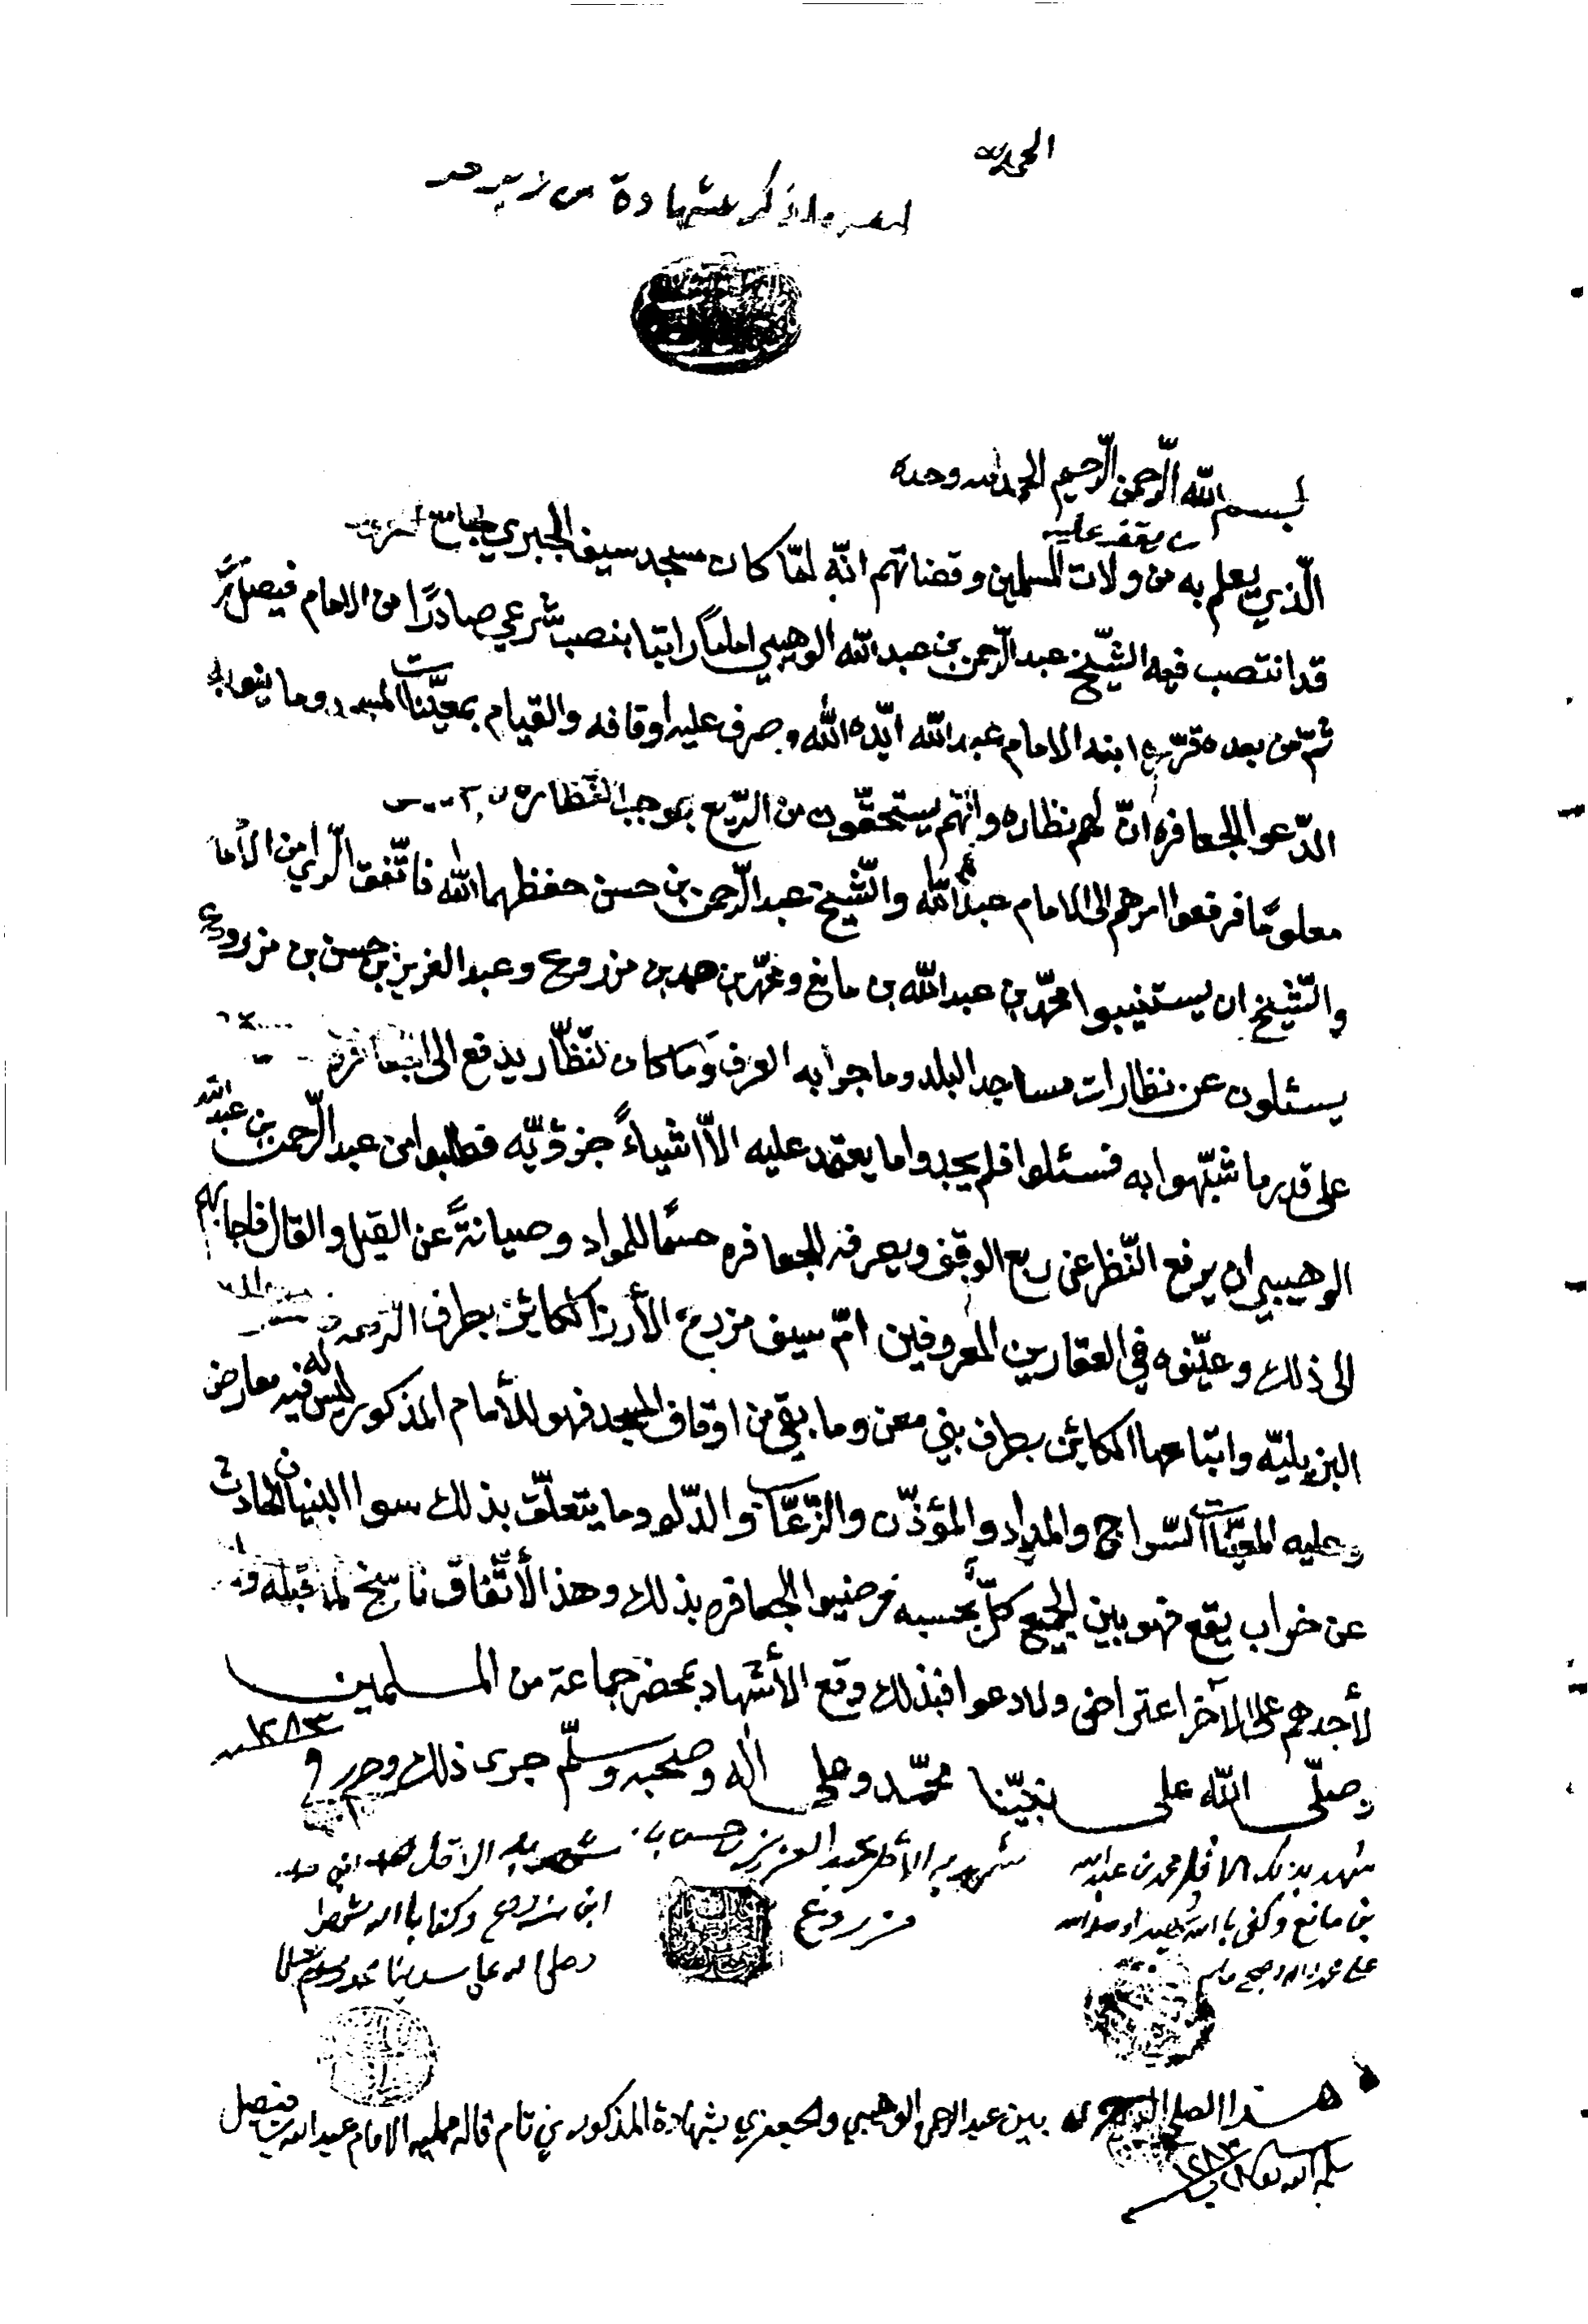 الحمد لله
ما ذكر بشهادة من
بسم الله الرّحمن الرّحيم الحمد لله وحده
يقف عليه
الّذي يعلم به من ولات المسلمين وقضاتهم انّه لمّا كان مسجد سيف الجبري
قد انتصب فيه الشّيخ عبد الرّحمن بن عبد الله الوهيبي اماماً راتبا بنصب شرعي صادرًا من الامام فيصل
ثمّ من بعده قرّره ابنه الامام عبد الله ايّده الله وصرف عليه اوقافه والقيام بمعيّنات المسجد وما ينوبه
ادّعوا الجعافره انّ لهم نظاره وانّهم يستحقّون من الرّيع بموجب النّظاره
معلومًا فرفعوا امرهم الى الامام عبد الله والشّيخ عبد الرّحمن بن حسن حفظهما الله فاتّفق الرّاي من الامام
والشّيخ ان يستنيبوا محمّد بن عبد الله بن مانع ومحمّد بن حمد بن مزروع وعبد العزيز بن حسن بن مزروع
يسئلون عن نظارات مساجد البلد وما جرا به العرف وما كان للنّظّار يدفع الى الجعافره
على قدر ما شبّهوا به فسئلوا فلم يجدوا ما يعتمد عليه الاّ اشياءً جزؤيّه فطلبوا من عبد الرّحمن بن عبد الله
الوهيبي ان يرفع النّظر عن ربع الوقف ويصرفه للجعافره حسمًا للمواد وصيانةً عن القيل والقال فاجابهم
الى ذلك وعيّنوه في العقارين المعروفين امّ سيف مزرع الأرز الكائن بطرف
البزيليّه وابتاعها الكائن بطرف بني معن وما بقي من اوقاف المسجد فهو للأمام المذكور ليس له فيه معارض
وعليه المعيّنات السّراج والمداد والمؤذّن والزّعّاب والدّلو وما يتعلّق بذلك سوا البنيان الحادث
عن خراب يقع فهو بين الجميع كلّ بحسبه فرضيوا الجعافره بذلك وهذا الأتّفاق ناسخ لما قبله
لأحدهم على الآخر اعتراض ولا دعوا فبذلك وقع الأشهاد بمحضر جماعة من المسلمين
وصلّى الله على نبيّنا محمّد وعلى آله وصحبه وسلّم جرى ذلك وحرر في ١٢٨٣
شهد بذلك الاقل محمد بن عبد الله
بن مانع وكفى بالله شهيدا وصلى الله
على محمد واله وصحبه وسلم
شهد به الأقل عبد العزيز بن حسن بن
مزروع
شهد به الاقل محمد بن حمد
ابن مزروع وكفا بالله شهيدا
وصلى الله على سيدنا محمد وسلم
هذا الصلح الذي جرى بين عبد الرحمن الوهيبي والجعفري بشهادة المذكورين تام قاله ممليه الامام عبد الله بن فيصل
سلمه الله تعالى ١٢٨٣